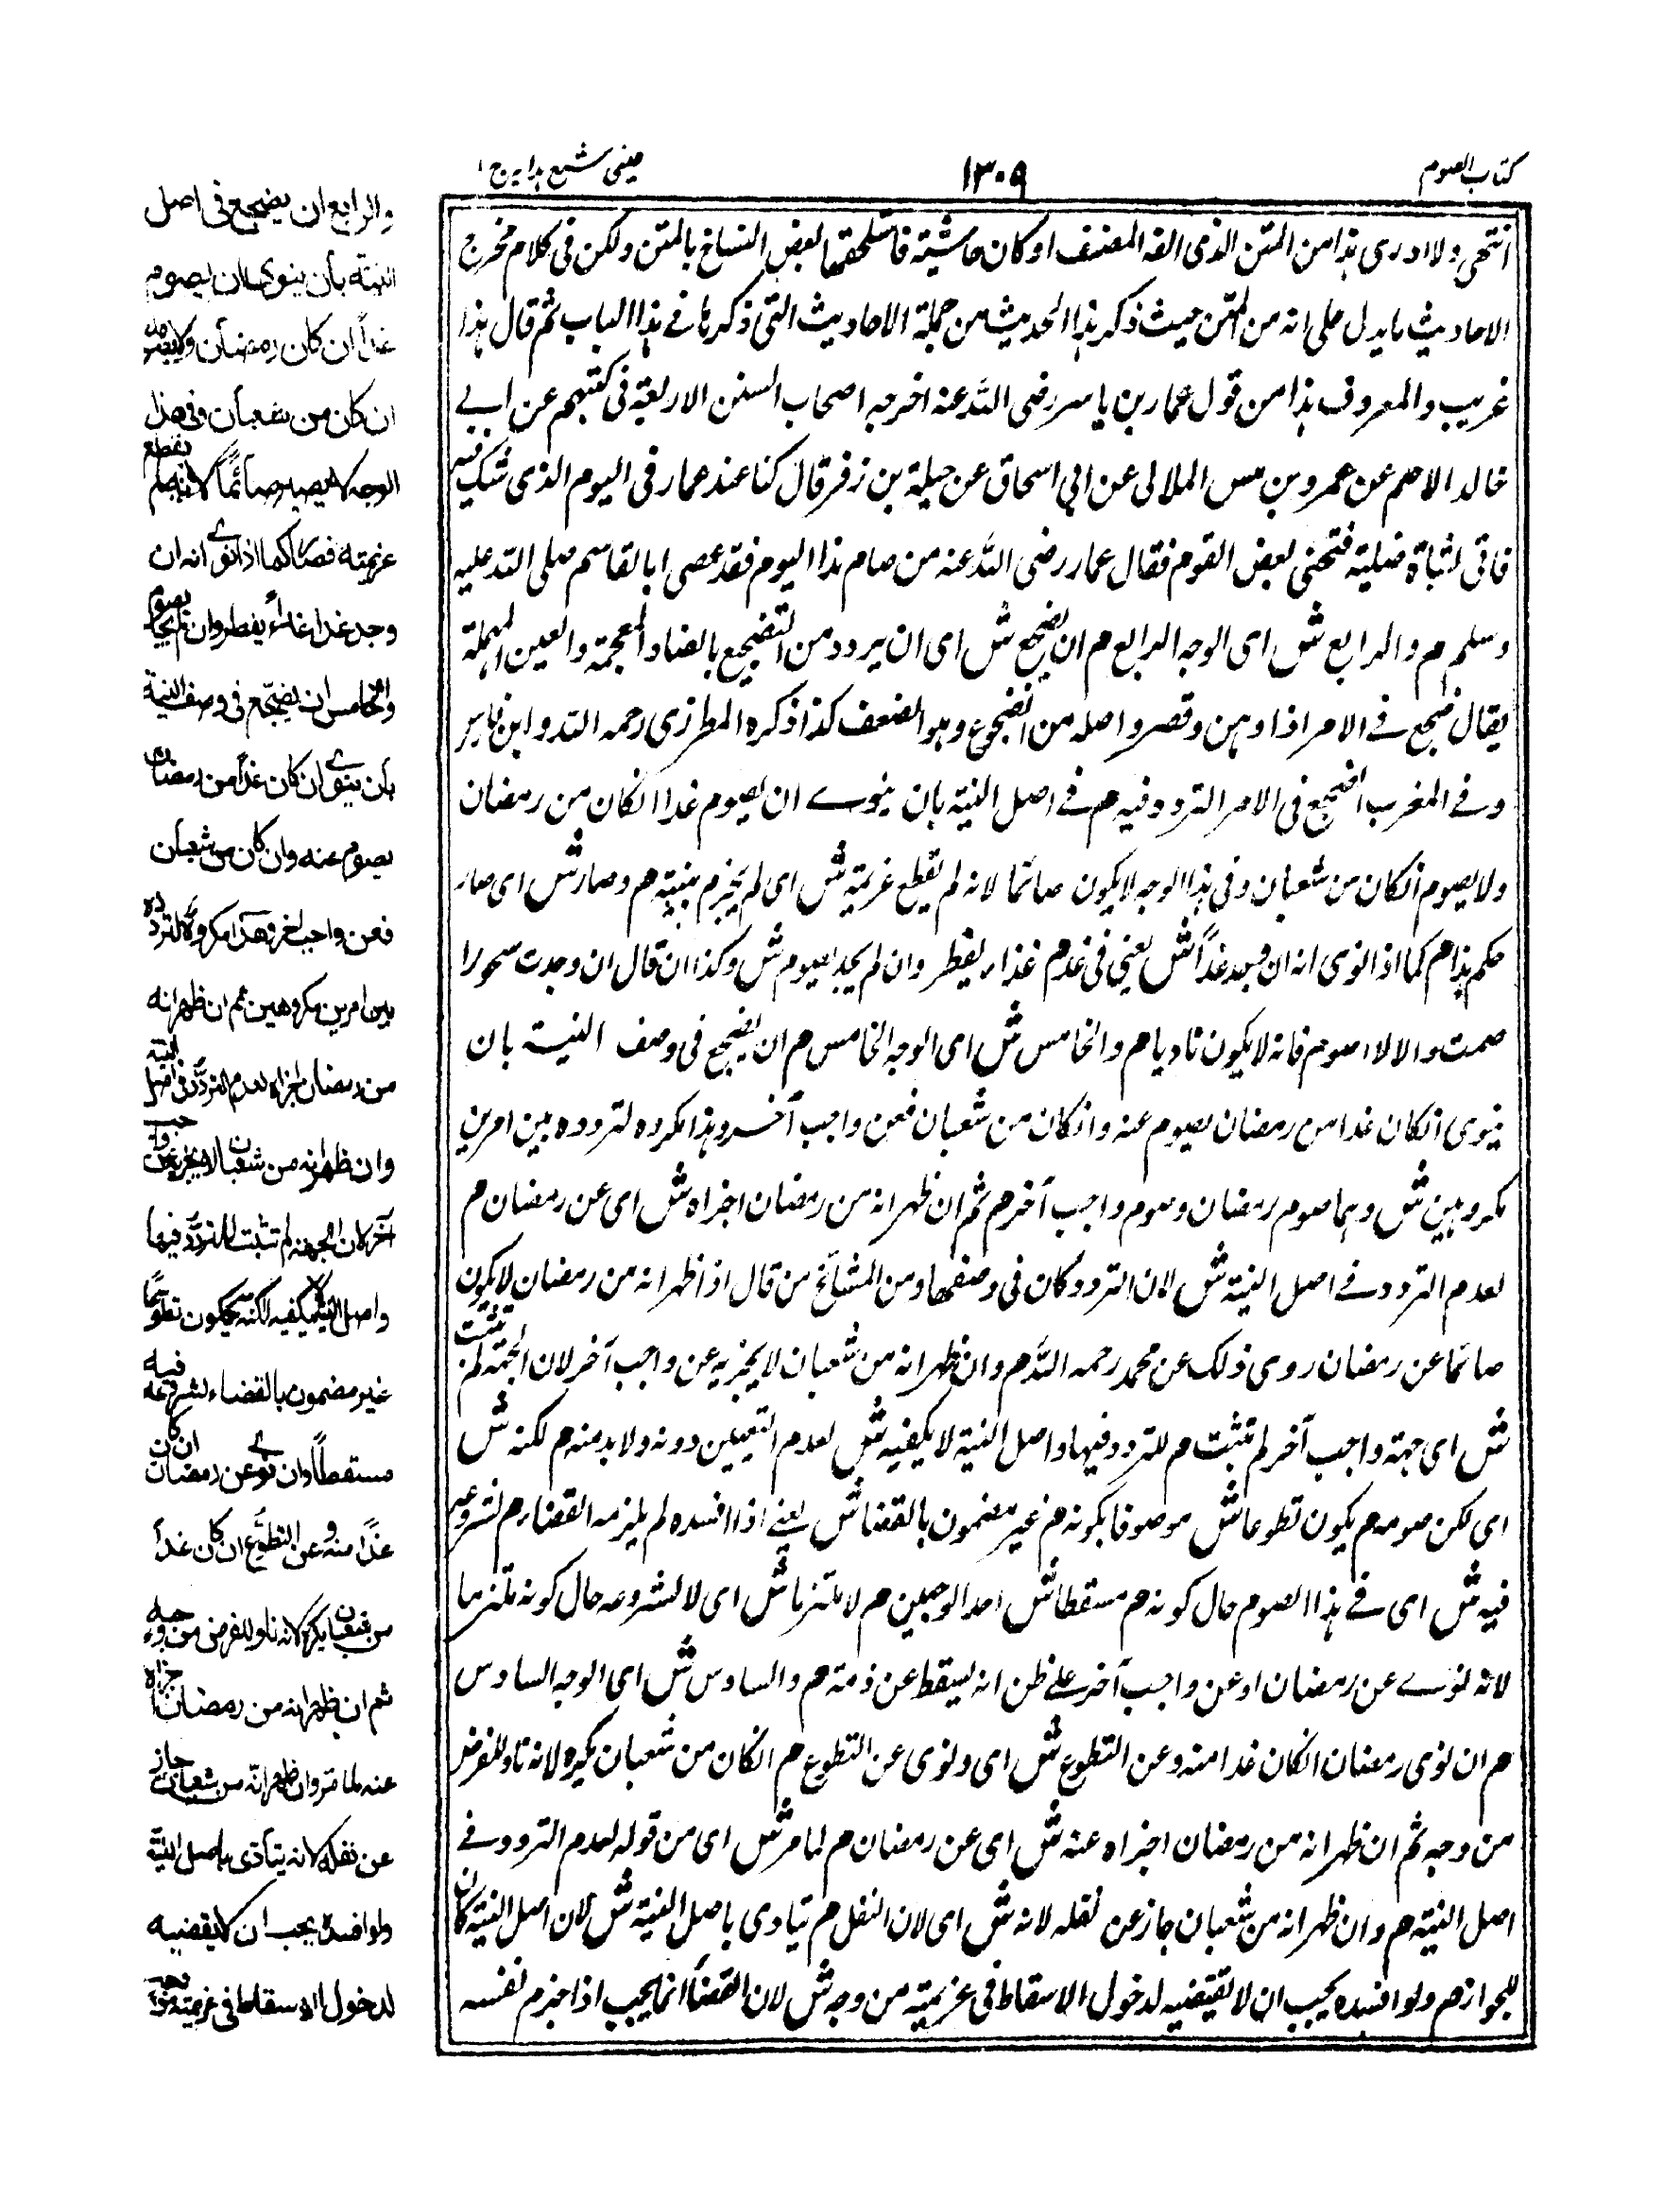 كتاب الصوم
١٣٠٩
عينى شرح هدايه ج ١
انتهى ولا ادرى هذا من المتن الذى الفه المصنف او كان حاشية فاستلحقها بعض النساخ بالمتن ولكن فى كلام مخرج
الاحاديث ما يدل على انه من المتن حيث ذكر هذا الحديث من جملة الاحاديث التى ذكرها فى هذا الباب ثم قال هذا
غريب والمعروف هذا من قول عمار بن ياسر رضى الله عنه اخرجه اصحاب السنن الاربعة فى كتبهم عن ابى
خالد الاحمر عن عمرو بن قيس الملالى عن ابى اسحاق عن صلة بن زفر قال كنا عند عمار فى اليوم الذى شك فيه
فاتى بشاة مصلية فتنحى بعض القوم فقال عمار رضى الله عنه من صام هذا اليوم فقد عصى ابا القاسم صلى الله عليه
وسلم م والرابع ش اى الوجه الرابع م ان يضجع ش اى ان يردد من التضجيع بالضاد المعجمة والعين المهملة
يقال ضجع فى الامر اذا وهن وقصر واصله من الضجوع وهو الضعف كذا ذكره المطرزى رحمه الله
وفى المغرب اضجع فى الامر التردد فيه م فى اصل النية بان ينوى ان يصوم غدا انكان من رمضان
ولا يصوم انكان من شعبان وفى هذا الوجه لا يكون صائما لانه لم يقطع عزيمته ش اى لم يجزم بنيته م وصار ش اى صار
حكم هذا م كما اذا نوى انه ان وجد غداً ش يعنى فى غد م غذاء يفطر وان لم يجد يصوم ش وكذا ان قال ان وجدت سحورا
صمت والا لا اصوم فانه لا يكون ناويا م والخامس ش اى الوجه الخامس م ان يضجع فى وصف النية بان
ينوى انكان غدا من رمضان يصوم عنه وانكان من شعبان فعن واجب آخر وهذا مكروه لتردده بين امرين
مكروهين ش وهما صوم رمضان وصوم واجب آخر م ثم ان ظهر انه من رمضان اجزاه ش اى عن رمضان م
لعدم التردد فى اصل النية ش لان التردد كان فى وصفها ومن المشائخ من قال اذا ظهر انه من رمضان لا يكون
صائما عن رمضان روى ذلك عن محمد رحمه الله م وان ظهر انه من شعبان لا يجزيه عن واجب آخر لان الجهة لم تثبت
ش اى جهة واجب آخر لم تثبت م للتردد فيها واصل النية لا يكفيه ش لعدم التعيين دونه ولا بد منه م لكنه ش
اى لكن صومه م يكون تطوعا ش موصوفا بكونه م غير مضمون بالقضا ش يعنى اذا افسده لم يلزمه القضاء م لشروعه
فيه ش اى فى هذا الصوم حال كونه م مسقطا ش احد الوجبين م لا ملتزما ش اى لا لشروعه حال كونه ملتزما
لانه نوى عن رمضان او عن واجب آخر على ظن انه يسقط عن ذمته م والسادس ش اى الوجه السادس
م ان نوى رمضان انكان غدا منه وعن التطوع ش اى ونوى عن التطوع م انكان من شعبان يكره لانه ناو للفرض
من وجه ثم ان ظهر انه من رمضان اجزاه عنه ش اى عن رمضان م لما مر ش اى من قوله لعدم التردد فى
اصل النية م وان ظهر انه من شعبان جاز عن نفله لانه ش اى لان النفل م يتادى باصل النية ش لان اصل النية كان
للجواز م ولو افسده يجب ان لا يقضيه لدخول الاسقاط فى عزيمته من وجه ش لان القضأ انما يجب اذا جزم نفسه
والرابع ان يضجع فى اصل
النية بأن ينوى ان يصوم
غداً ان كان رمضان ولا يصومه
ان كان من شعبان وفى هذا
الوجه لا يصير صائماً لانه لم يقطع
عزيمته فصار كما اذا نوى انه ان
وجد غدا غداءً يفطر وان لم يجد يصوم
والخامس ان يضجع فى وصف النية
بأن ينوى ان كان غداً من رمضان
يصوم عنه وان كان من شعبان
فعن واجب اخر وهذا مكروه لتردده
بين امرين مكروهين ثم ان ظهر انه
من رمضان اجزاه لعدم التردد فى اصل النية
وان ظهر انه من شعبان لا يجزيه عن واجب
آخر لان الجهة لم تثبت للتردد فيها
واصل النية لا يكفيه لكنه يكون تطوعاً
غير مضمون بالقضاء لشروعه فيه
مسقطاً وان نوى عن رمضان ان كان
غداً منه وعن التطوع ان كان غداً
من شعبان يكره لانه ناو للفرض من وجه
ثم ان ظهر انه من رمضان اجزاه
عنه لما مر وان ظهر انه من شعبان جاز
عن نفله لانه يتأدى باصل النية
ولو افسده يجب ان لا يقضيه
لدخول الاسقاط فى عزيمته من وجه